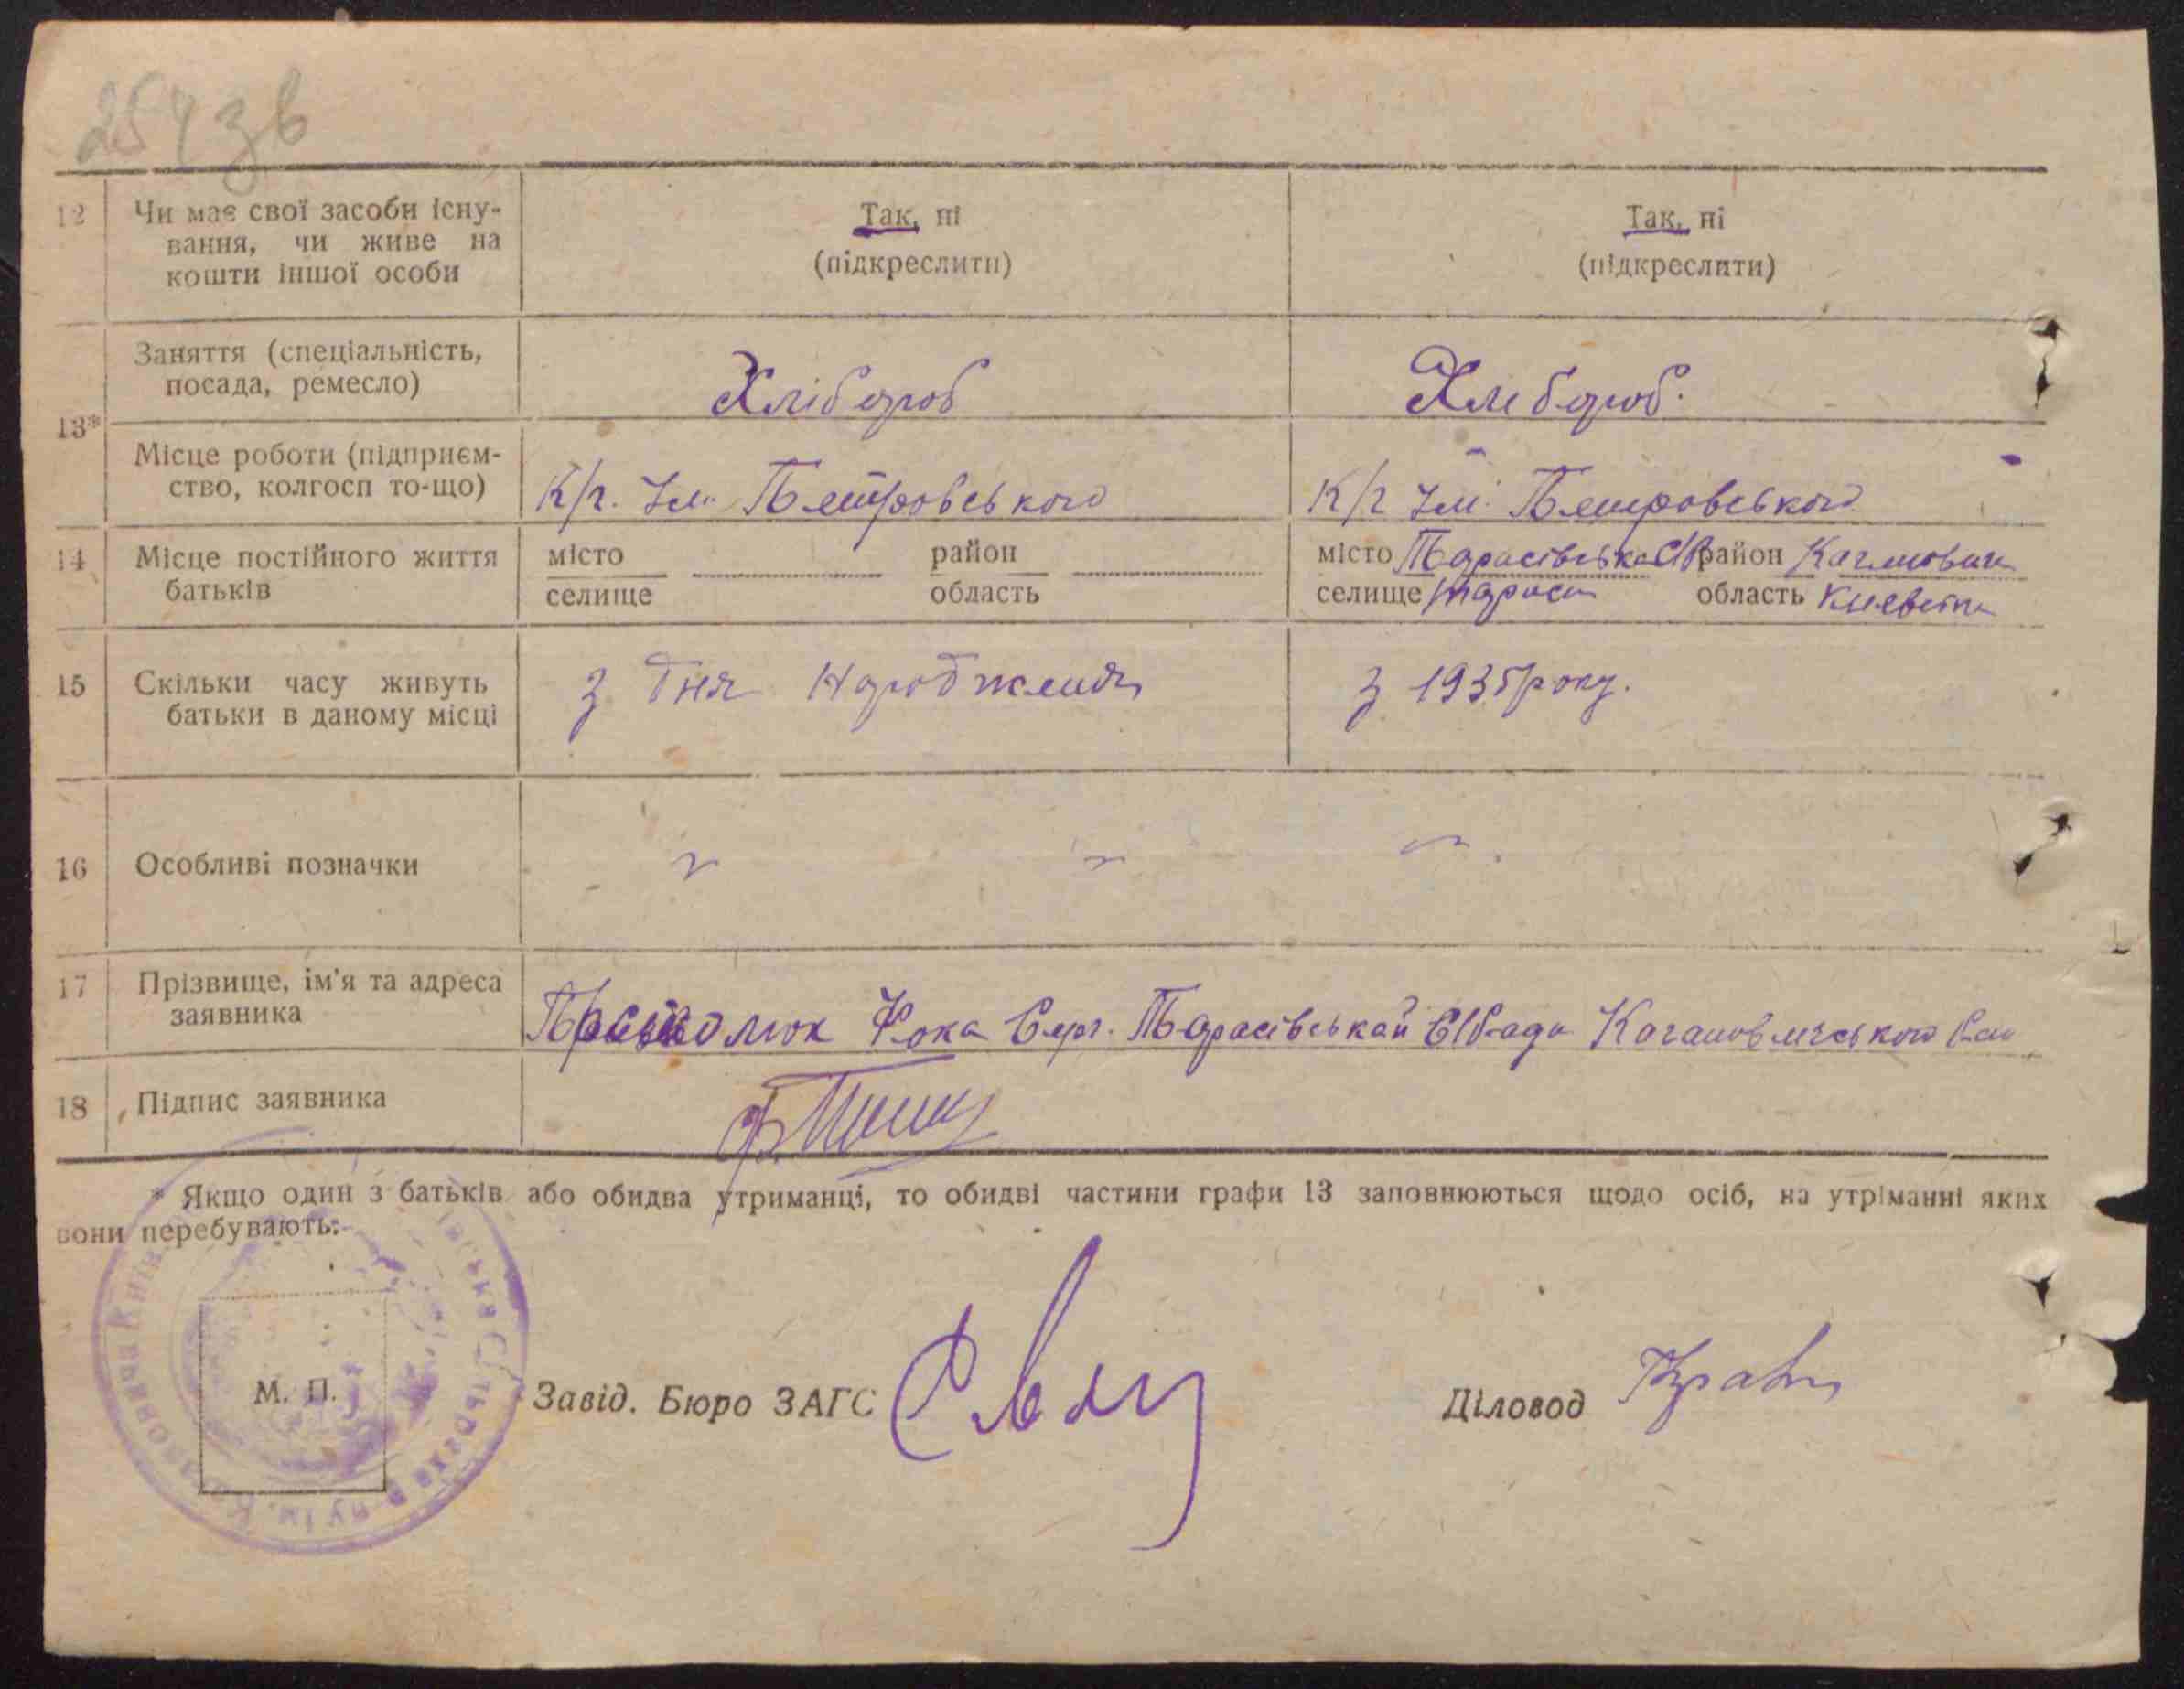 254 зв
12 Чи має свої засоби існу-
вання, чи живе на
кошти іншої особи
Так, ні
(підкреслити)
Так, ні
(підкреслити)
13*
Заняття (спеціальність,
посада, ремесло)
Хлібороб
Хлебороб.
Місце роботи (підприєм-
ство, колгосп то-що)
К/г. Ім. Петровського
К/г Ім. Петровського
14 Місце постійного життя
батьків
місто район
селище область
місто Тарасівська С/Р район Каганович
селище Тарас область Киевськ
15 Скільки часу живуть
батьки в даному місці
з дня народження
з 1935 року.
16 Особливі позначки
17 Прізвище, ім'я та адреса
заявника
Фока Серг. Тарасівськой С/Рада Кагановичського
18 Підпис заявника
* Якщо один з батьків або обидва утриманці, то обидві частини графи 13 заповнюються щодо осіб, на утріманні яких
вони перебувають.
М. П.
Завід. Бюро ЗАГС
Діловод Крав